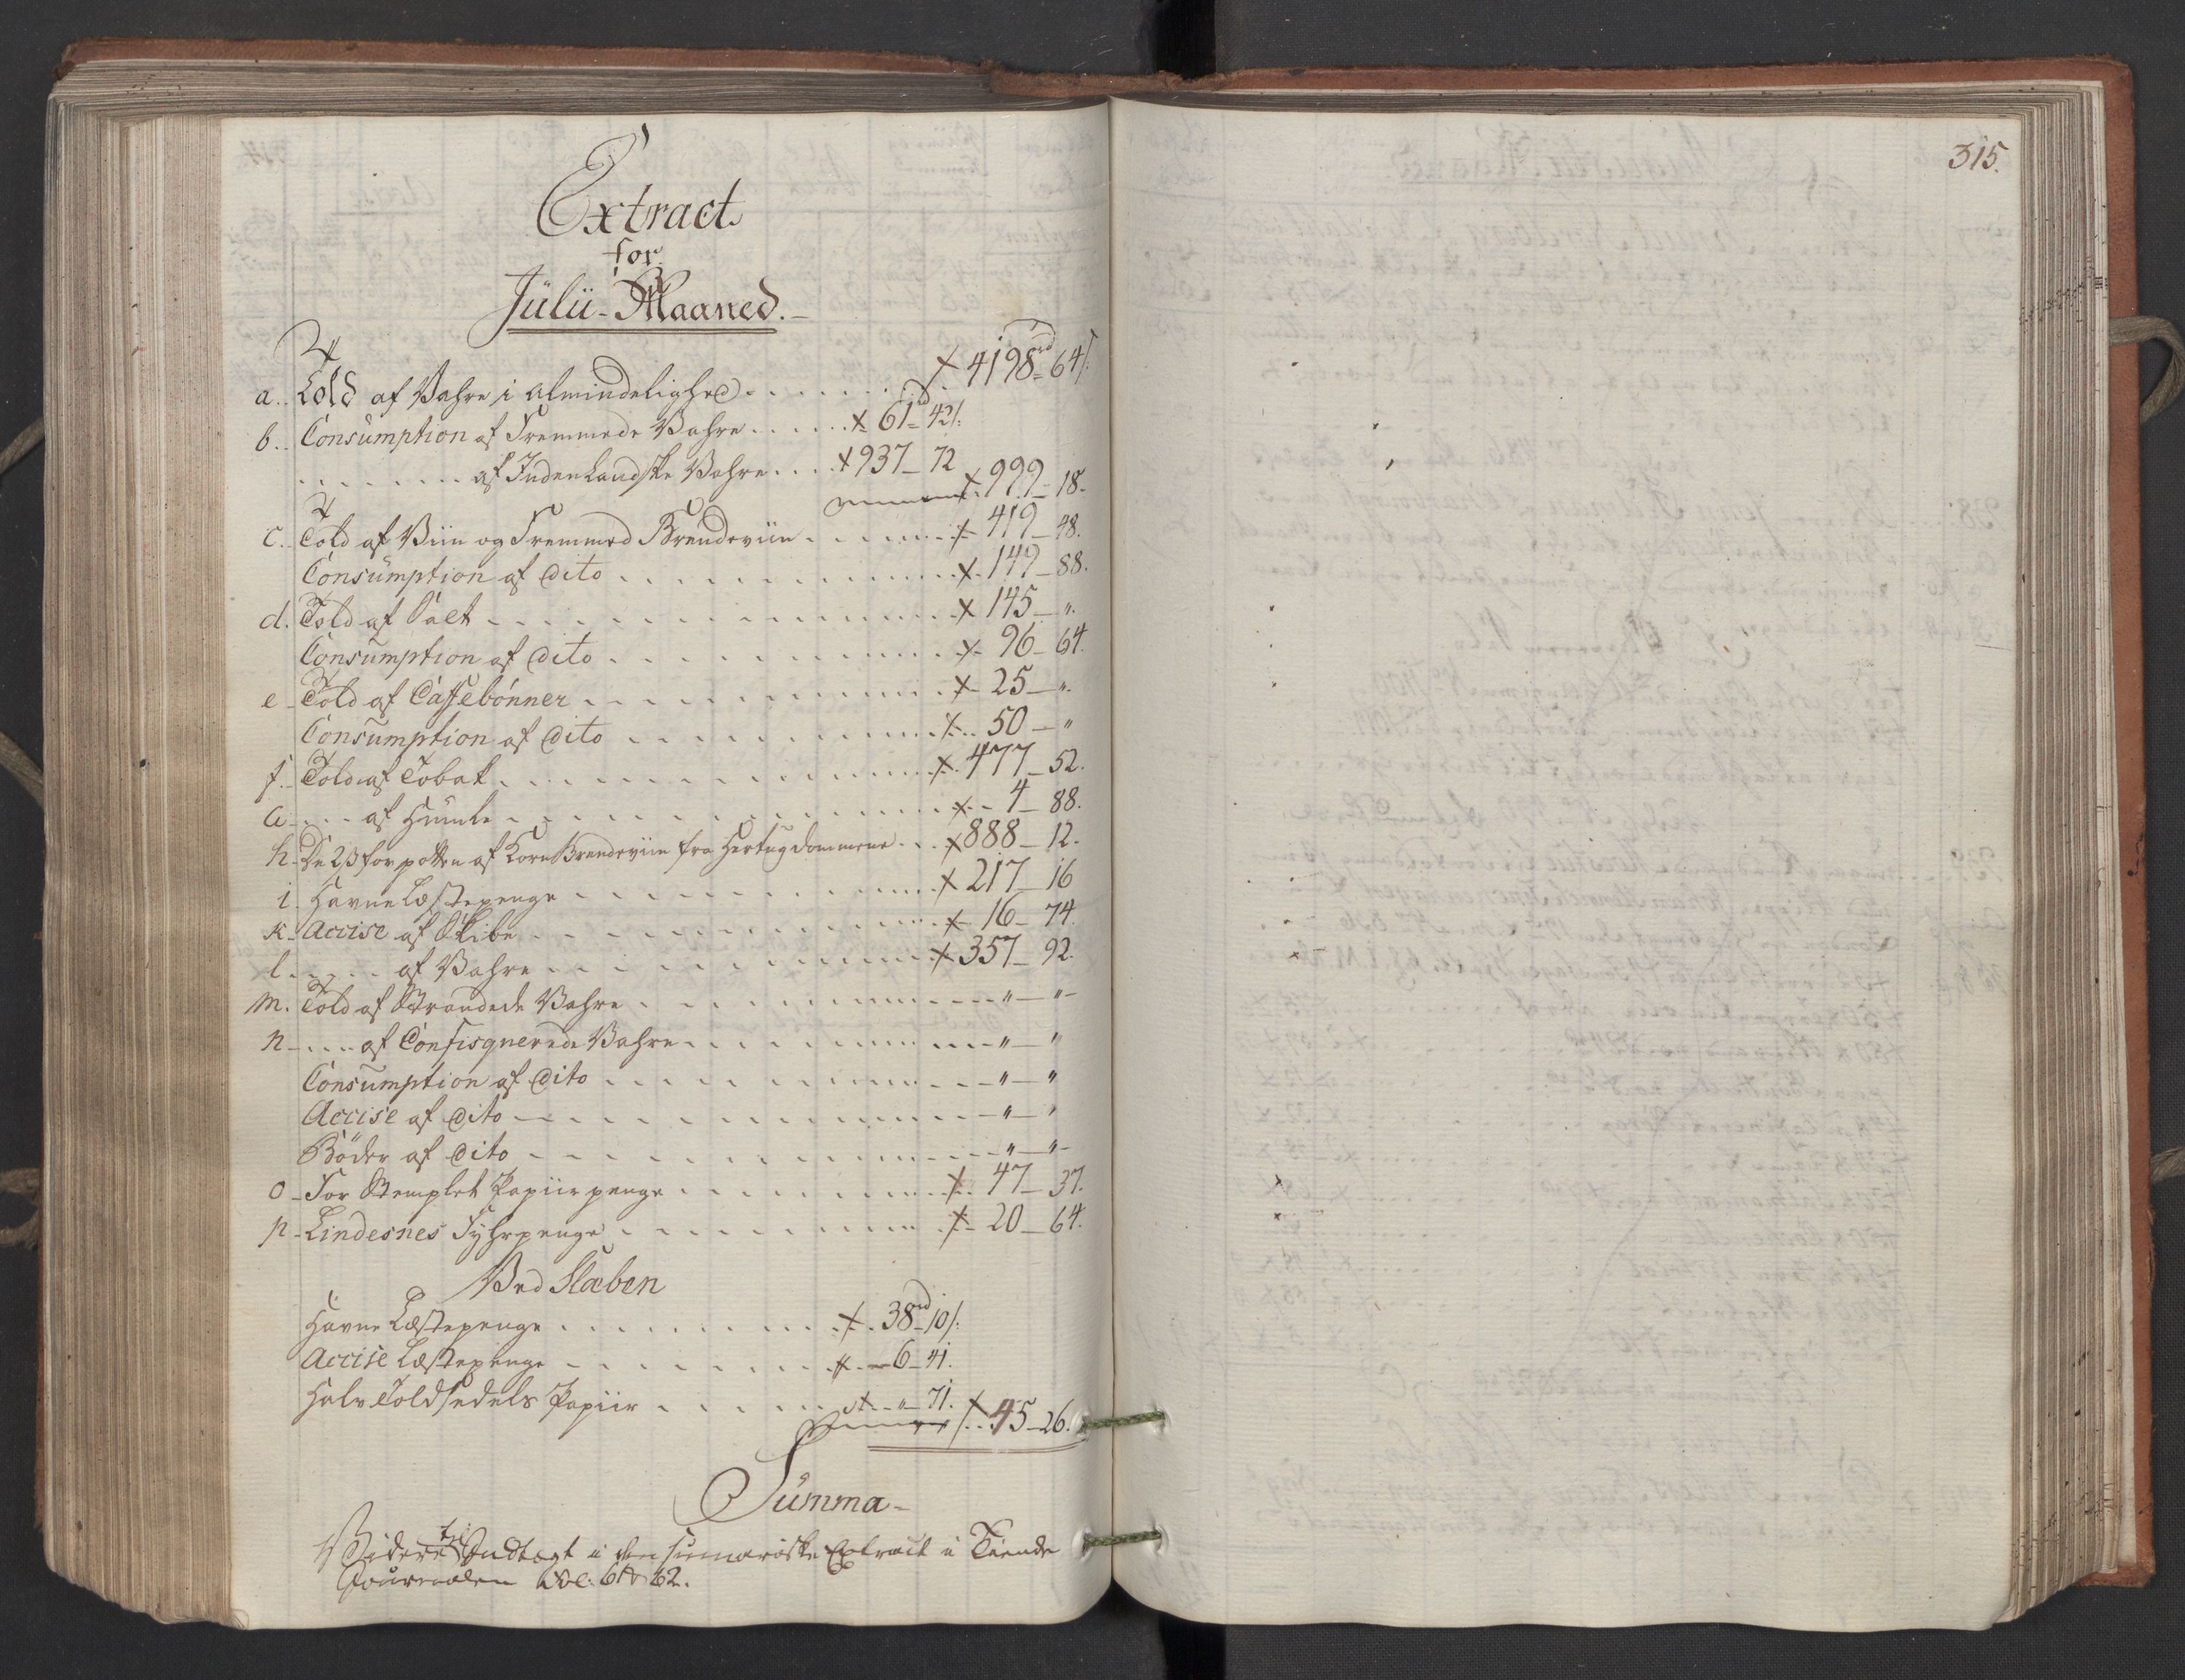 Extract
for
Julii-Maaned.
a. Told af Vahre i Almindelighed . . . . . . . 4198rd 64ß.
b. Consumption af Fremmede Vahre . . . . . . 61rd 42ß.
. . . . . . . af Indenlandske Vahre . . . . 937 _ 72
999 _ 18.
c. Told af Viin og Fremmed Brendeviin . . . . . . 419 _ 48.
Consumption af Dito . . . . . . . . . . . . 149 _ 88.
d. Told af Salt . . . . . . . . . . . . 145 _ ".
Consumption af Dito . . . . . . . . . . . . 96 _ 64.
e. Told af Caffebönner . . . . . . . . . . 25 _ ".
Consumption af Dito . . . . . . . . . . . 50 _ "
f. Told af Tobak . . . . . . . . . . . . 477 _ 52.
G . . . af Humle . . . . . . . . . . . . 4 _ 88.
h. De 2ß for potten af Korn Brendeviin fra Hertugdommene . . 888 _ 12.
i. Havne Læstepenge . . . . . . . . . . 217 _ 16
k. Accise af Skibe . . . . . . . . . . . 16 _ 74.
l. . . . . af Vahre . . . . . . . . . . . 357 _ 92.
m. Told af Strandede Vahre . . . . . . . . . . " _ " _
n . . . . af Confisquerede Vahre . . . . . . . . . " _ "
Consumption af Dito . . . . . . . . . . . " _ "
Accise af Dito . . . . . . . . . . . . . " _ "
Böder af Dito . . . . . . . . . . . . . " _ " _
o _ For Stemplet Papiir penge . . . . . . . . 47 _ 37.
p _ Lindesnes Fyhrpenge . . . . . . . . . . 20 _ 64.
Ved Slæben
Havne Læstepenge . . . . . . . . . . 38rd 10ß.
Accise Læstepenge . . . . . . . . . . 6 _ 41.
Halv Toldsedels Papiir . . . . . . . . " _ 71.
45 _ 26.
Summa _
Videre Indtagt i den sumariske Extract i Tiende
Journalen Fol: 61 & 62.
315.